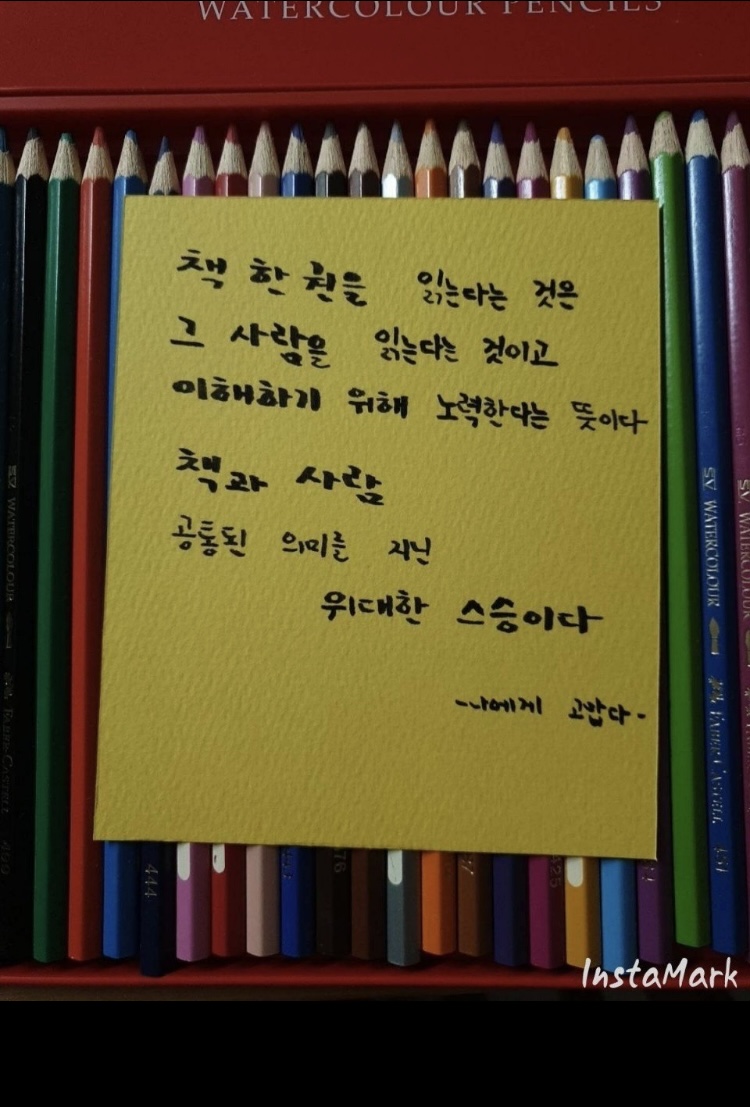 WATERCOLOUR PENCILS
책 한 권을 읽는다는 것은
그 사람을 읽는다는 것이고
이해하기 위해 노력한다는 뜻이다
책과 사람
공통된 의미를 지닌
위대한 스승이다
-나에게 고맙다-
SV WATERCOLOUR
FABER-CASTELL
SV WATERCOLOUR
FABER-CASTELL
444
InstaMark